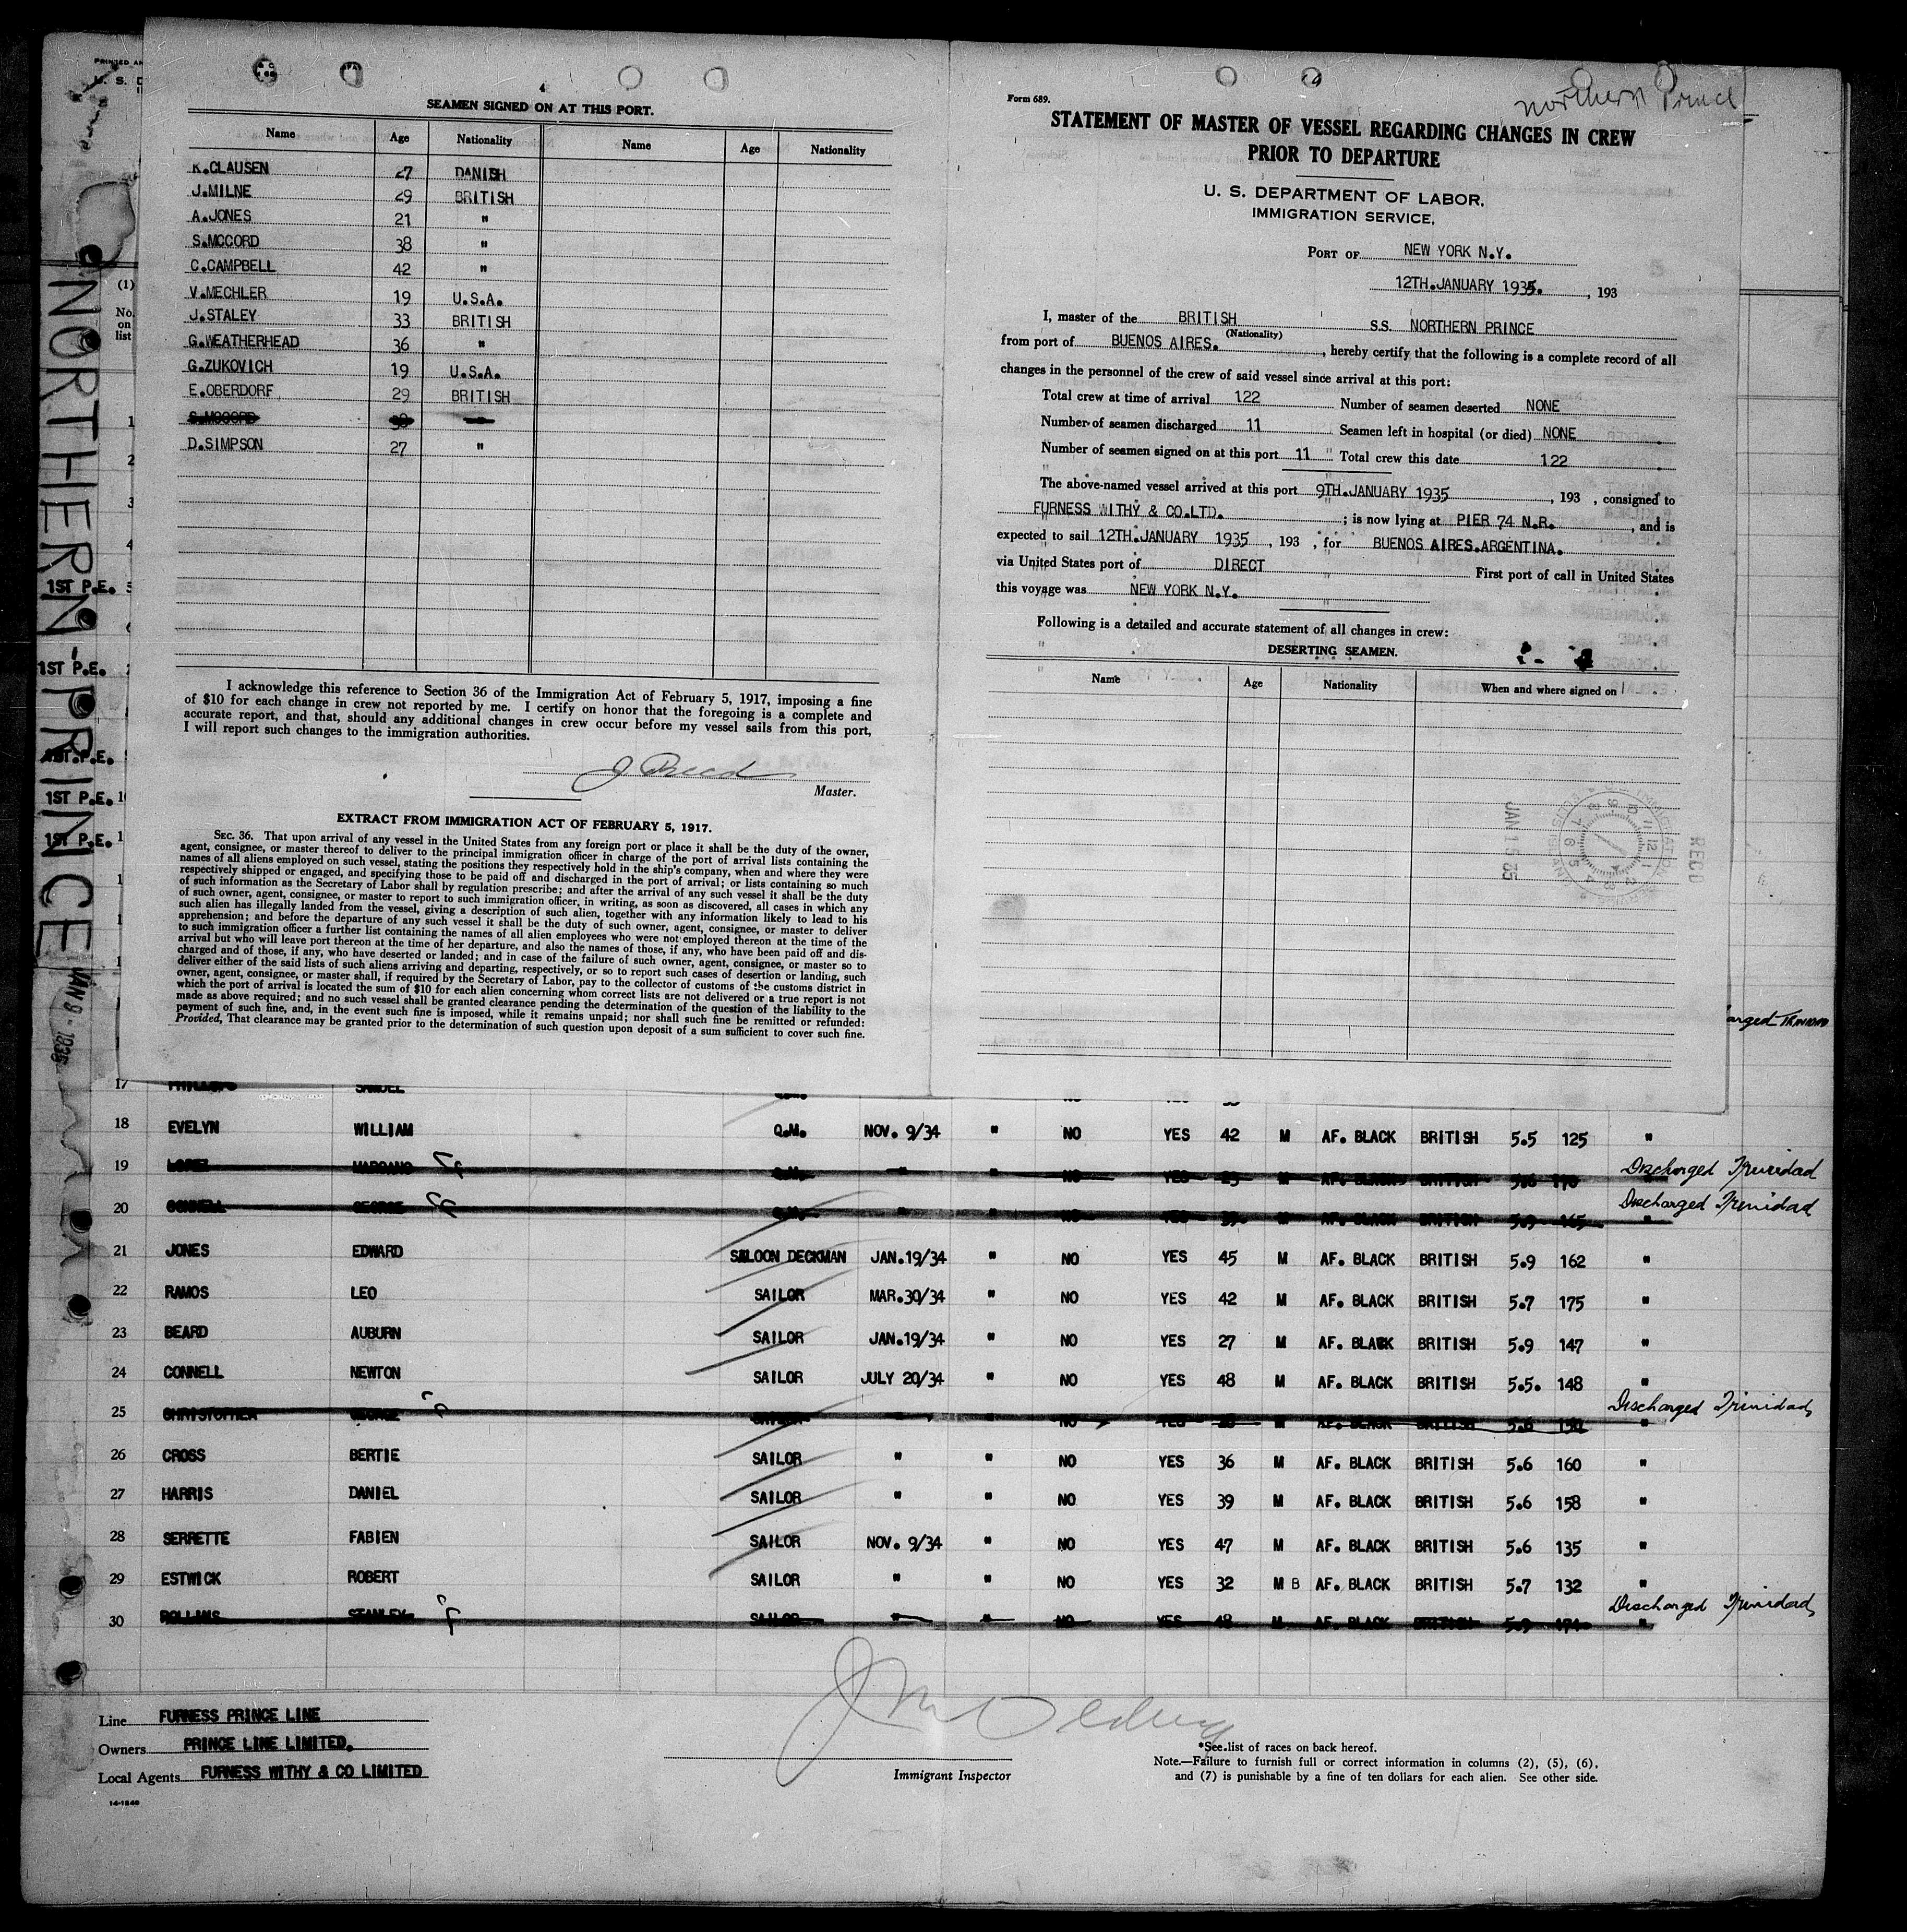 PRINTED
U. S. D
(1)
No. on list
NORTHERN PRINCE
JAN 9 - 1935
SEAMEN SIGNED ON AT THIS PORT.
Name Age Nationality Name Age Nationality
K.CLAUSEN 27 DANISH
J.MILNE 29 BRITISH
A.JONES 21 "
S.MCCORD 38 "
C.CAMPBELL 42 "
V.MECHLER 19 U.S.A.
J.STALEY 33 BRITISH
G.WEATHERHEAD 36 "
G.ZUKOVICH 19 U.S.A.
E.OBERDORF 29 BRITISH
S.MCCORD 38 "
D.SIMPSON 27 "
I acknowledge this reference to Section 36 of the Immigration Act of February 5, 1917, imposing a fine
of $10 for each change in crew not reported by me. I certify on honor that the foregoing is a complete and
accurate report, and that, should any additional changes in crew occur before my vessel sails from this port,
I will report such changes to the immigration authorities.
Master.
EXTRACT FROM IMMIGRATION ACT OF FEBRUARY 5, 1917.
SEC. 36. That upon arrival of any vessel in the United States from any foreign port or place it shall be the duty of the owner,
agent, consignee, or master thereof to deliver to the principal immigration officer in charge of the port of arrival lists containing the
names of all aliens employed on such vessel, stating the positions they respectively hold in the ship's company, when and where they were
respectively shipped or engaged, and specifying those to be paid off and discharged in the port of arrival; or lists containing so much
of such information as the Secretary of Labor shall by regulation prescribe; and after the arrival of any such vessel it shall be the duty
of such owner, agent, consignee, or master to report to such immigration officer, in writing, as soon as discovered, all cases in which any
such alien has illegally landed from the vessel, giving a description of such alien, together with any information likely to lead to his
apprehension; and before the departure of any such vessel it shall be the duty of such owner, agent, consignee, or master to deliver
to such immigration officer a further list containing the names of all alien employees who were not employed thereon at the time of the
arrival but who will leave port thereon at the time of her departure, and also the names of those, if any, who have been paid off and dis-
charged and of those, if any, who have deserted or landed; and in case of the failure of such owner, agent, consignee, or master so to
deliver either of the said lists of such aliens arriving and departing, respectively, or so to report such cases of desertion or landing, such
owner, agent, consignee, or master shall, if required by the Secretary of Labor, pay to the collector of customs of the customs district in
which the port of arrival is located the sum of $10 for each alien concerning whom correct lists are not delivered or a true report is not
made as above required; and no such vessel shall be granted clearance pending the determination of the question of the liability to the
payment of such fine, and, in the event such fine is imposed, while it remains unpaid; nor shall such fine be remitted or refunded:
Provided, That clearance may be granted prior to the determination of such question upon deposit of a sum sufficient to cover such fine.
Northern Prince
Form 689.
STATEMENT OF MASTER OF VESSEL REGARDING CHANGES IN CREW
PRIOR TO DEPARTURE
U. S. DEPARTMENT OF LABOR,
IMMIGRATION SERVICE,
PORT OF NEW YORK N.Y.
12TH.JANUARY 1935. , 193
I, master of the BRITISH S.S. NORTHERN PRINCE
(Nationality)
from port of BUENOS AIRES. , hereby certify that the following is a complete record of all
changes in the personnel of the crew of said vessel since arrival at this port:
Total crew at time of arrival 122 Number of seamen deserted NONE
Number of seamen discharged 11 Seamen left in hospital (or died) NONE
Number of seamen signed on at this port 11 Total crew this date 122
The above-named vessel arrived at this port 9TH.JANUARY 1935 , 193 , consigned to
FURNESS WITHY & CO.LTD. ; is now lying at PIER 74 N.R. , and is
expected to sail 12TH.JANUARY 1935 , 193 , for BUENOS AIRES.ARGENTINA.
via United States port of DIRECT First port of call in United States
this voyage was NEW YORK N.Y.
Following is a detailed and accurate statement of all changes in crew:
DESERTING SEAMEN.
Name Age Nationality When and where signed on
REC'D
1ST P.E. 5
1ST P.E.
1ST P.E.
1ST P.E. 1
1ST P.E. 1
arged TRINIDAD
17 PHILLIPS SAMUEL
18 EVELYN WILLIAM Q.M. NOV. 9/34 " NO YES 42 M AF. BLACK BRITISH 5.5 125 "
19 LOPEZ Q.M. " " NO YES M AF. BLACK BRITISH 5.6 170 Discharged Trinidad
20 CONNELL GEORGE Q.M. " " NO YES M AF. BLACK BRITISH 5.9 165 " Discharged Trinidad
21 JONES EDWARD SALOON DECKMAN JAN.19/34 " NO YES 45 M AF. BLACK BRITISH 5.9 162 "
22 RAMOS LEO SAILOR MAR.30/34 " NO YES 42 M AF. BLACK BRITISH 5.7 175 "
23 BEARD AUBURN SAILOR JAN.19/34 " NO YES 27 M AF. BLACK BRITISH 5.9 147 "
24 CONNELL NEWTON SAILOR JULY 20/34 " NO YES 48 M AF. BLACK BRITISH 5.5. 148 "
25 CHRISTOPHER GEORGE SAILOR " " NO YES M AF. BLACK BRITISH 5.6 150 " Discharged Trinidad
26 CROSS BERTIE SAILOR " " NO YES 36 M AF. BLACK BRITISH 5.6 160 "
27 HARRIS DANIEL SAILOR " " NO YES 39 M AF. BLACK BRITISH 5.6 158 "
28 SERRETTE FABIEN SAILOR NOV. 9/34 " NO YES 47 M AF. BLACK BRITISH 5.6 135 "
29 ESTWICK ROBERT SAILOR " " NO YES 32 M B AF. BLACK BRITISH 5.7 132 "
30 ROLLINS STANLEY SAILOR " " NO YES 48 M AF. BLACK BRITISH 5.9 174 " Discharged Trinidad
Line FURNESS PRINCE LINE
Owners PRINCE LINE LIMITED.
Local Agents FURNESS WITHY & CO LIMITED
14-1540
Immigrant Inspector
*See list of races on back hereof.
Note.—Failure to furnish full or correct information in columns (2), (5), (6),
and (7) is punishable by a fine of ten dollars for each alien. See other side.